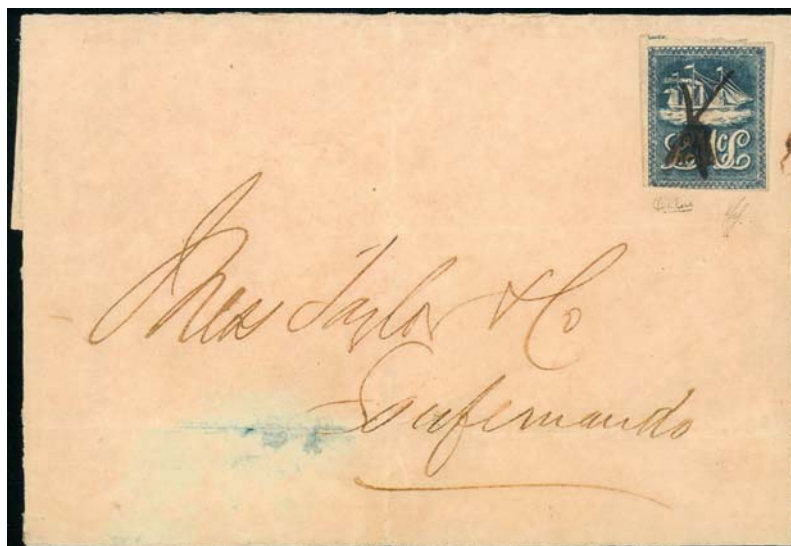 LMcL
Thos Taylor & Co
Sanfernando